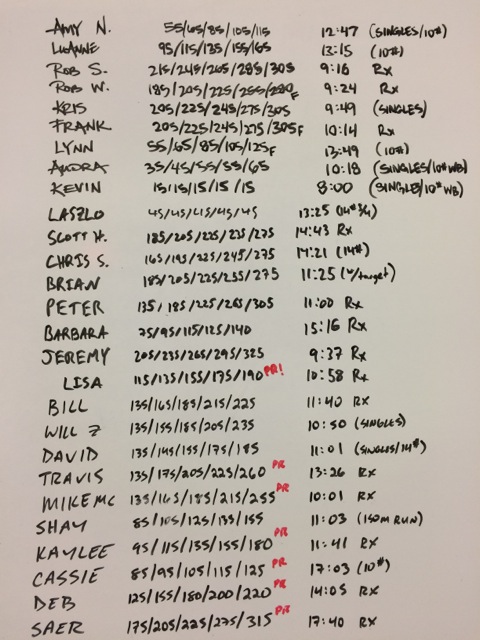 AMY N. 55/65/85/105/115 12:47 (SINGLES/10#)
LUANNE 95/115/135/155/165 13:15 (10#)
ROB S. 215/245/265/285/305 9:16 RX
ROB W. 185/205/225/255/280F 9:24 RX
KRIS 205/225/245/275/305 9:49 (SINGLES)
FRANK 205/225/245/275/305F 10:14 RX
LYNN 55/65/85/105/125F 13:49 (10#)
AUDRA 35/45/55/55/65 10:18 (SINGLES/10# WB)
KEVIN 15/15/15/15/15 8:00 (SINGLES/10# WB)
LASZLO 45/45/45/45/45 13:25 (14# 3/4)
SCOTT H. 185/205/225/235/275 14:43 RX
CHRIS S. 165/195/225/245/275 14:21 (14#)
BRIAN 185/205/225/255/275 11:25 (w/target)
PETER 135/185/225/265/305 11:00 RX
BARBARA 75/95/115/125/140 15:16 RX
JEREMY 205/235/265/295/325 9:37 RX
LISA 115/135/155/175/190 PR! 10:58 RX
BILL 135/165/185/215/225 11:40 RX
WILL Z 135/155/185/205/235 10:50 (SINGLES)
DAVID 135/145/155/175/185 11:01 (SINGLES/14#)
TRAVIS 135/175/205/225/260 PR 13:26 RX
MIKE MC 135/165/185/215/255 PR 10:01 RX
SHAY 85/105/125/135/155 11:03 (150M RUN)
KAYLEE 95/115/135/155/180 PR 11:41 RX
CASSIE 85/95/105/115/125 PR 17:03 (10#)
DEB 125/155/180/200/220 PR 14:05 RX
SAER 175/205/225/275/315 PR 17:40 RX